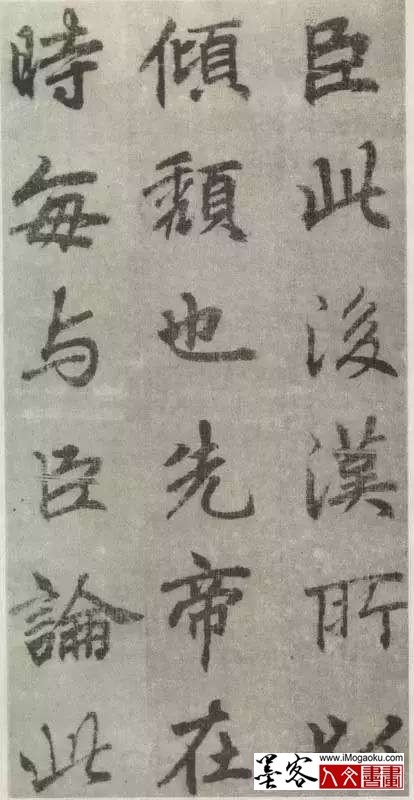 臣此後漢所以
傾頹也先帝在
時每与臣論此
www.iMogaoku.com
墨客
人文書畫